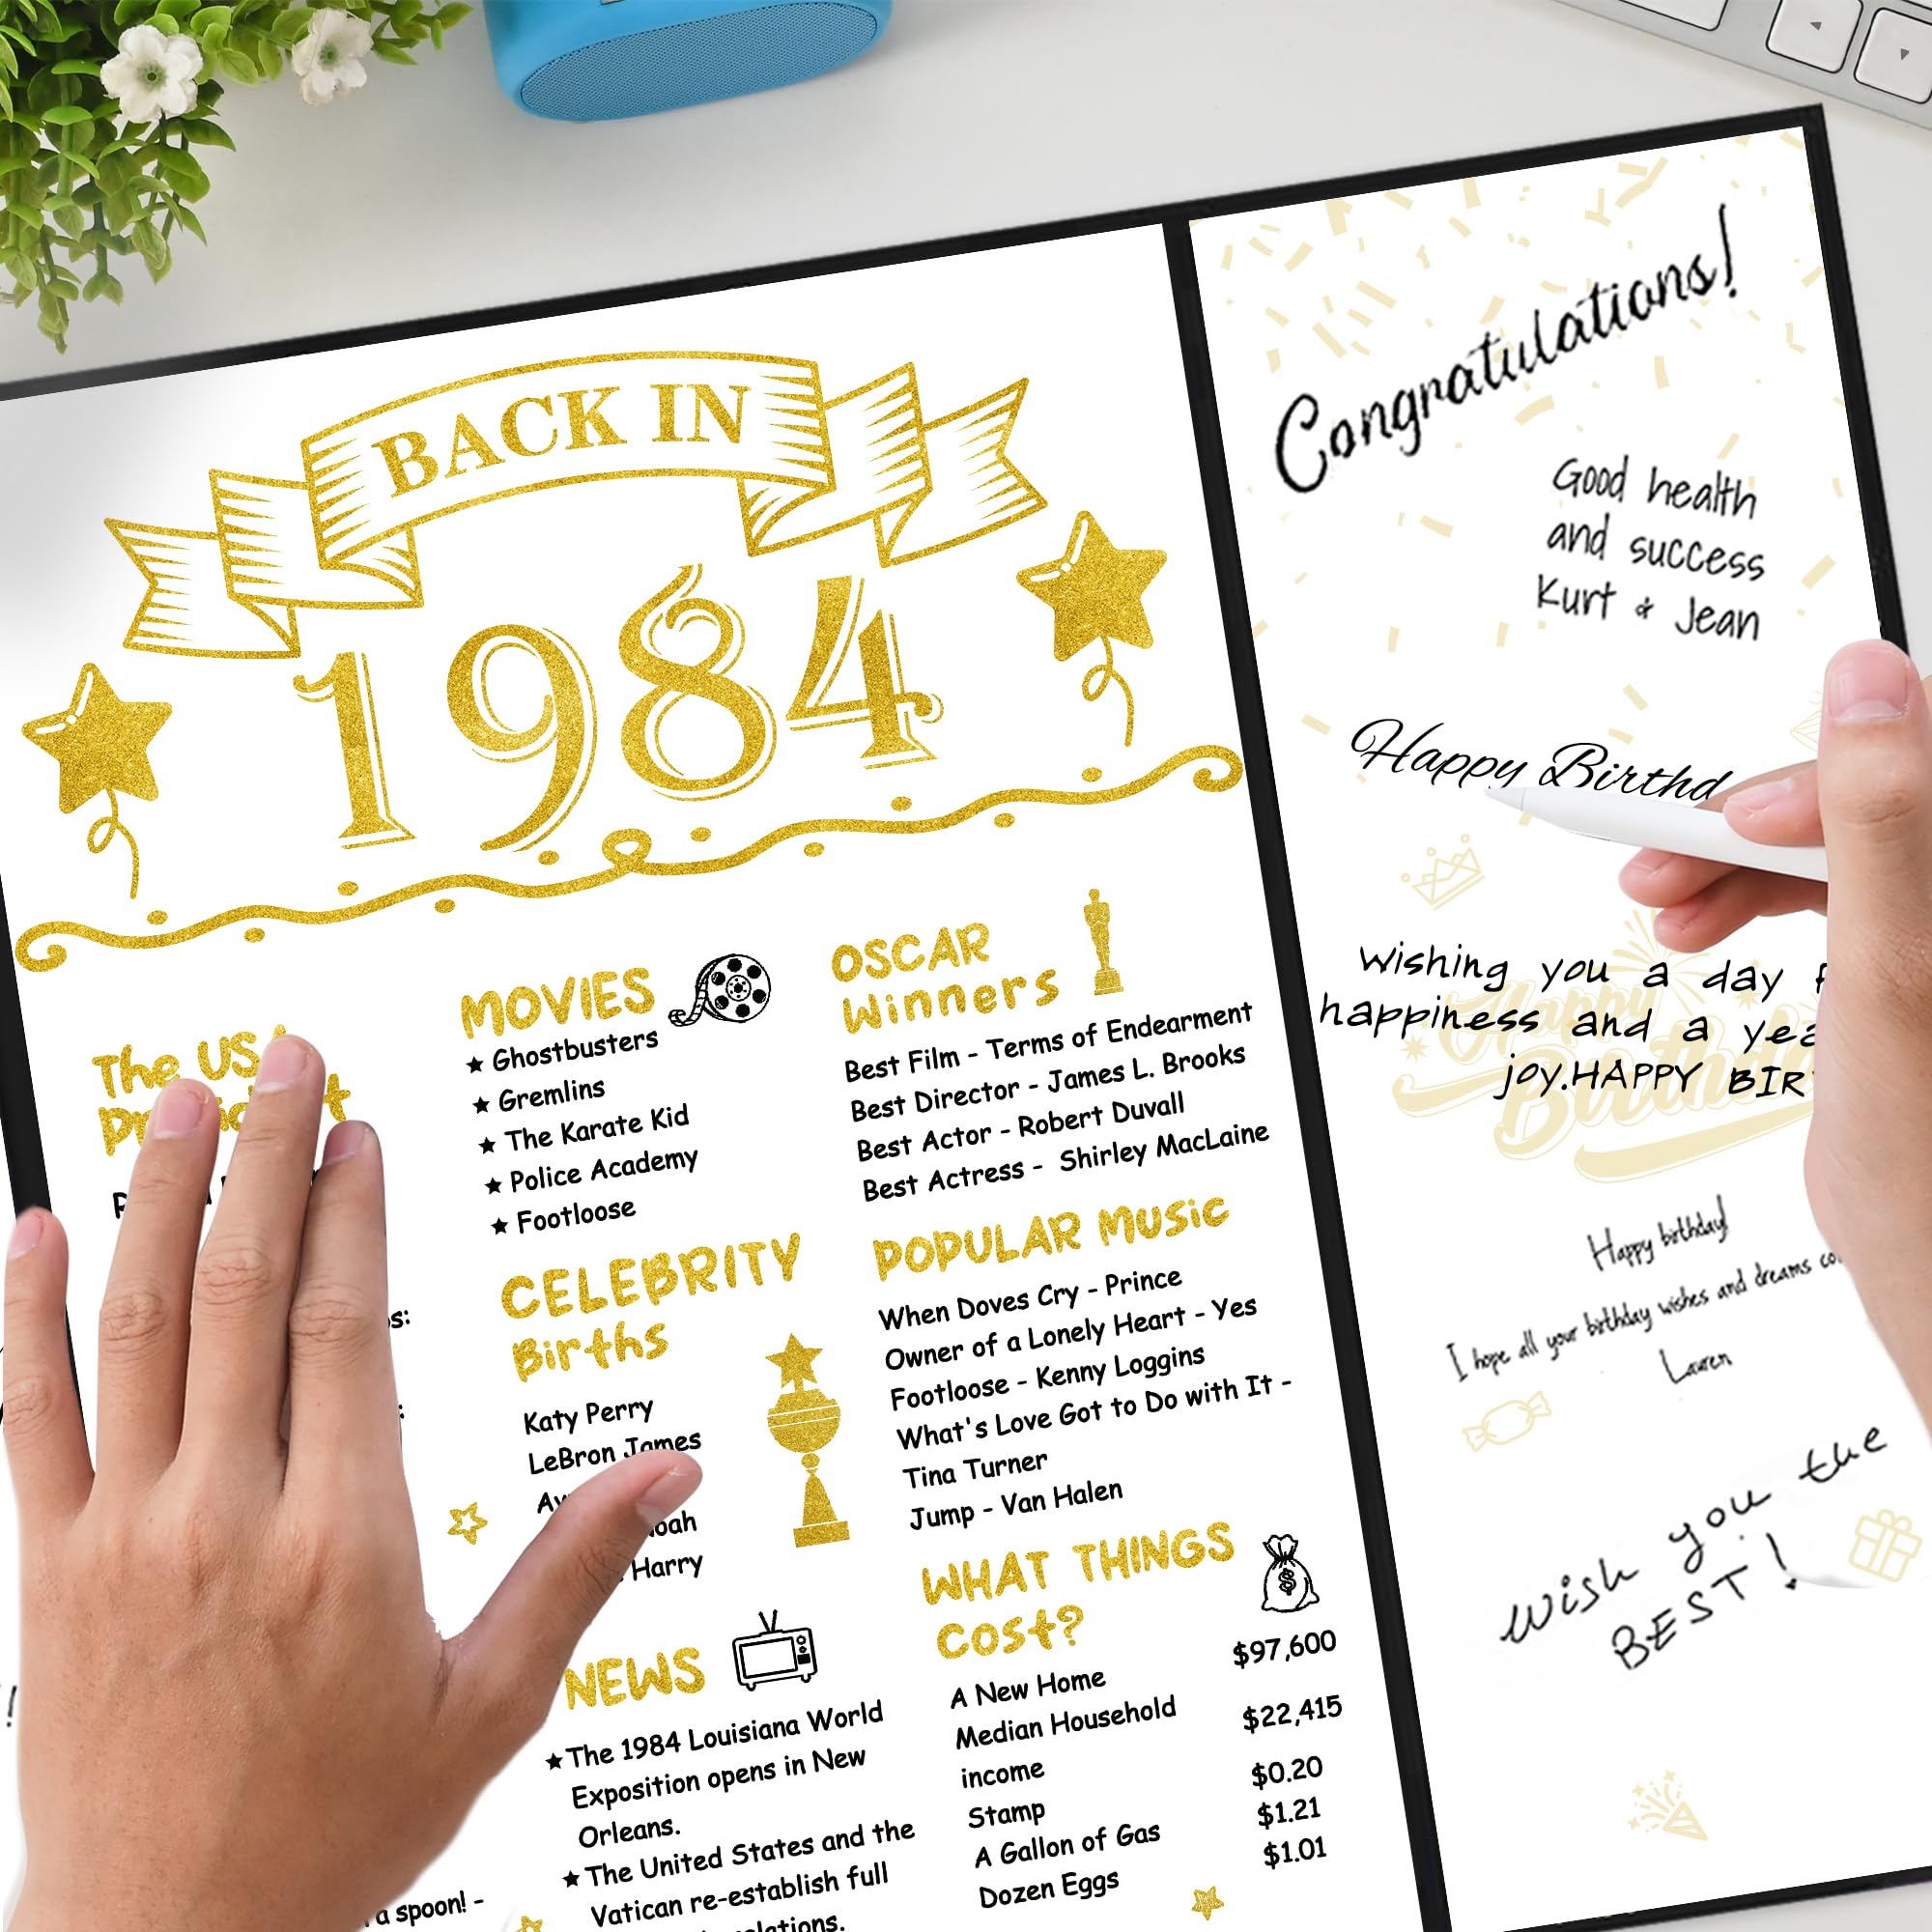 BACK IN
1984
The USA
MOVIES
★ Ghostbusters
★ Gremlins
★ The Karate Kid
★ Police Academy
★ Footloose
CELEBRITY
Births
Katy Perry
LeBron James
Harry
NEWS
★ The 1984 Louisiana World
Exposition opens in New
Orleans.
★ The United States and the
Vatican re-establish full
a spoon! -
OSCAR
Winners
Best Film - Terms of Endearment
Best Director - James L. Brooks
Best Actor - Robert Duvall
Best Actress - Shirley MacLaine
POPULAR MUSIC
When Doves Cry - Prince
Owner of a Lonely Heart - Yes
Footloose - Kenny Loggins
What's Love Got to Do with It -
Tina Turner
Jump - Van Halen
WHAT THINGS
COST?
A New Home $97,600
Median Household $22,415
income
Stamp $0.20
A Gallon of Gas $1.21
Dozen Eggs $1.01
Congratulations!
Good health
and success
Kurt & Jean
Happy Birthd
Wishing you a day
happiness and a
joy.HAPPY
Happy Birthday
Happy birthday!
I hope all your birthday wishes and dreams
Lauren
Wish you the
BEST!